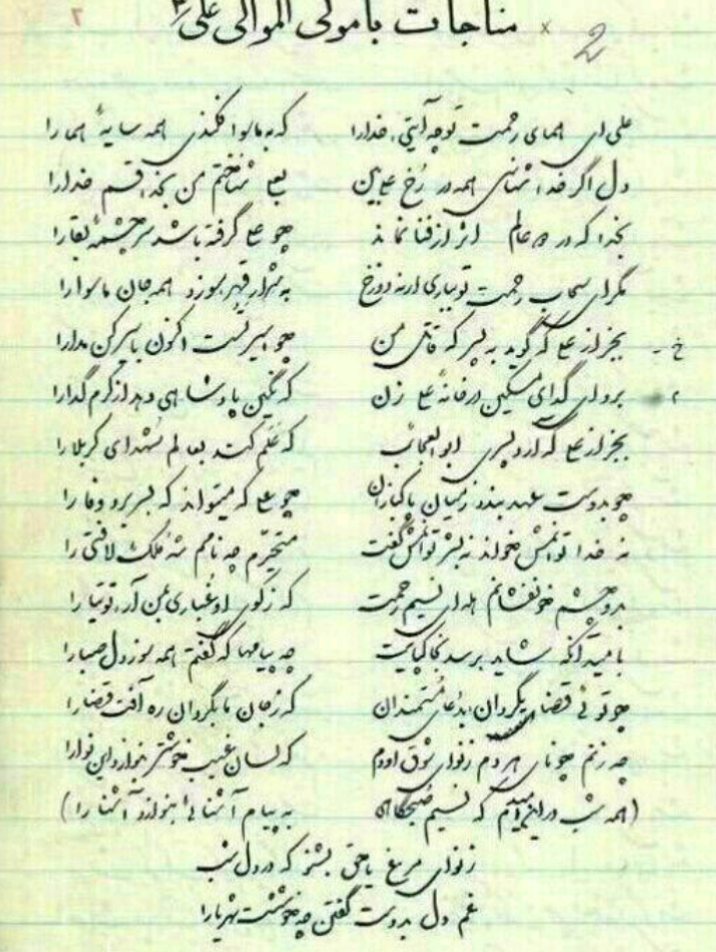 ۲
× مناجات با مولی الموالی علی ۴
2
علی ای همای رحمت تو چه آیتی خدا را که به ماسوا فکندی همه سایهٔ هما را
دل اگر خداشناسی همه در رخ علی بین بعلی شناختم من بخدا قسم خدا را
بخدا که در دو عالم اثر از فنا نماند چو علی گرفته باشد سر چشمهٔ بقا را
مگر ای سحاب رحمت تو بباری ارنه دوزخ به شرار قهر سوزد همه جان ماسوا را
خ - بجز از علی که گوید به پسر که قاتل من چو اسیر تست اکنون باسیر کن مدارا
م برو ای گدای مسکین در خانهٔ علی زن که نگین پادشاهی دهد از کرم گدا را
بجز از علی که آرد پسری ابوالعجائب که علم کند بعالم شهدای کربلا را
چو بدوست عهد بندد ز میان پاکبازان چو علی که میتواند که بسر برد وفا را
نه خدا توانمش خواند نه بشر توانمش گفت متحیرم چه نامم شه ملک لافتی را
بدو چشم خونفشانم هله ای نسیم رحمت که ز کوی او غباری بمن آر توتیا را
بامید آنکه شاید برسد بخاکپایت چه پیامها که گفتم همه سوز دل صبا را
چو توئی قضا بگردان بدعای مستمندان که ز جان ما بگردان ره آفت قضا را
چه زنم چو نای هر دم ز نوای شوق او دم که لسان غیب خوشتر بنوازد این نوا را
(همه شب در این امیدم که نسیم صبحگاهی به پیام آشنائی بنوازد آشنا را)
ز نوای مرغ یا حق بشنو که در دل شب
غم دل بدوست گفتن چه خوشست شهریارا